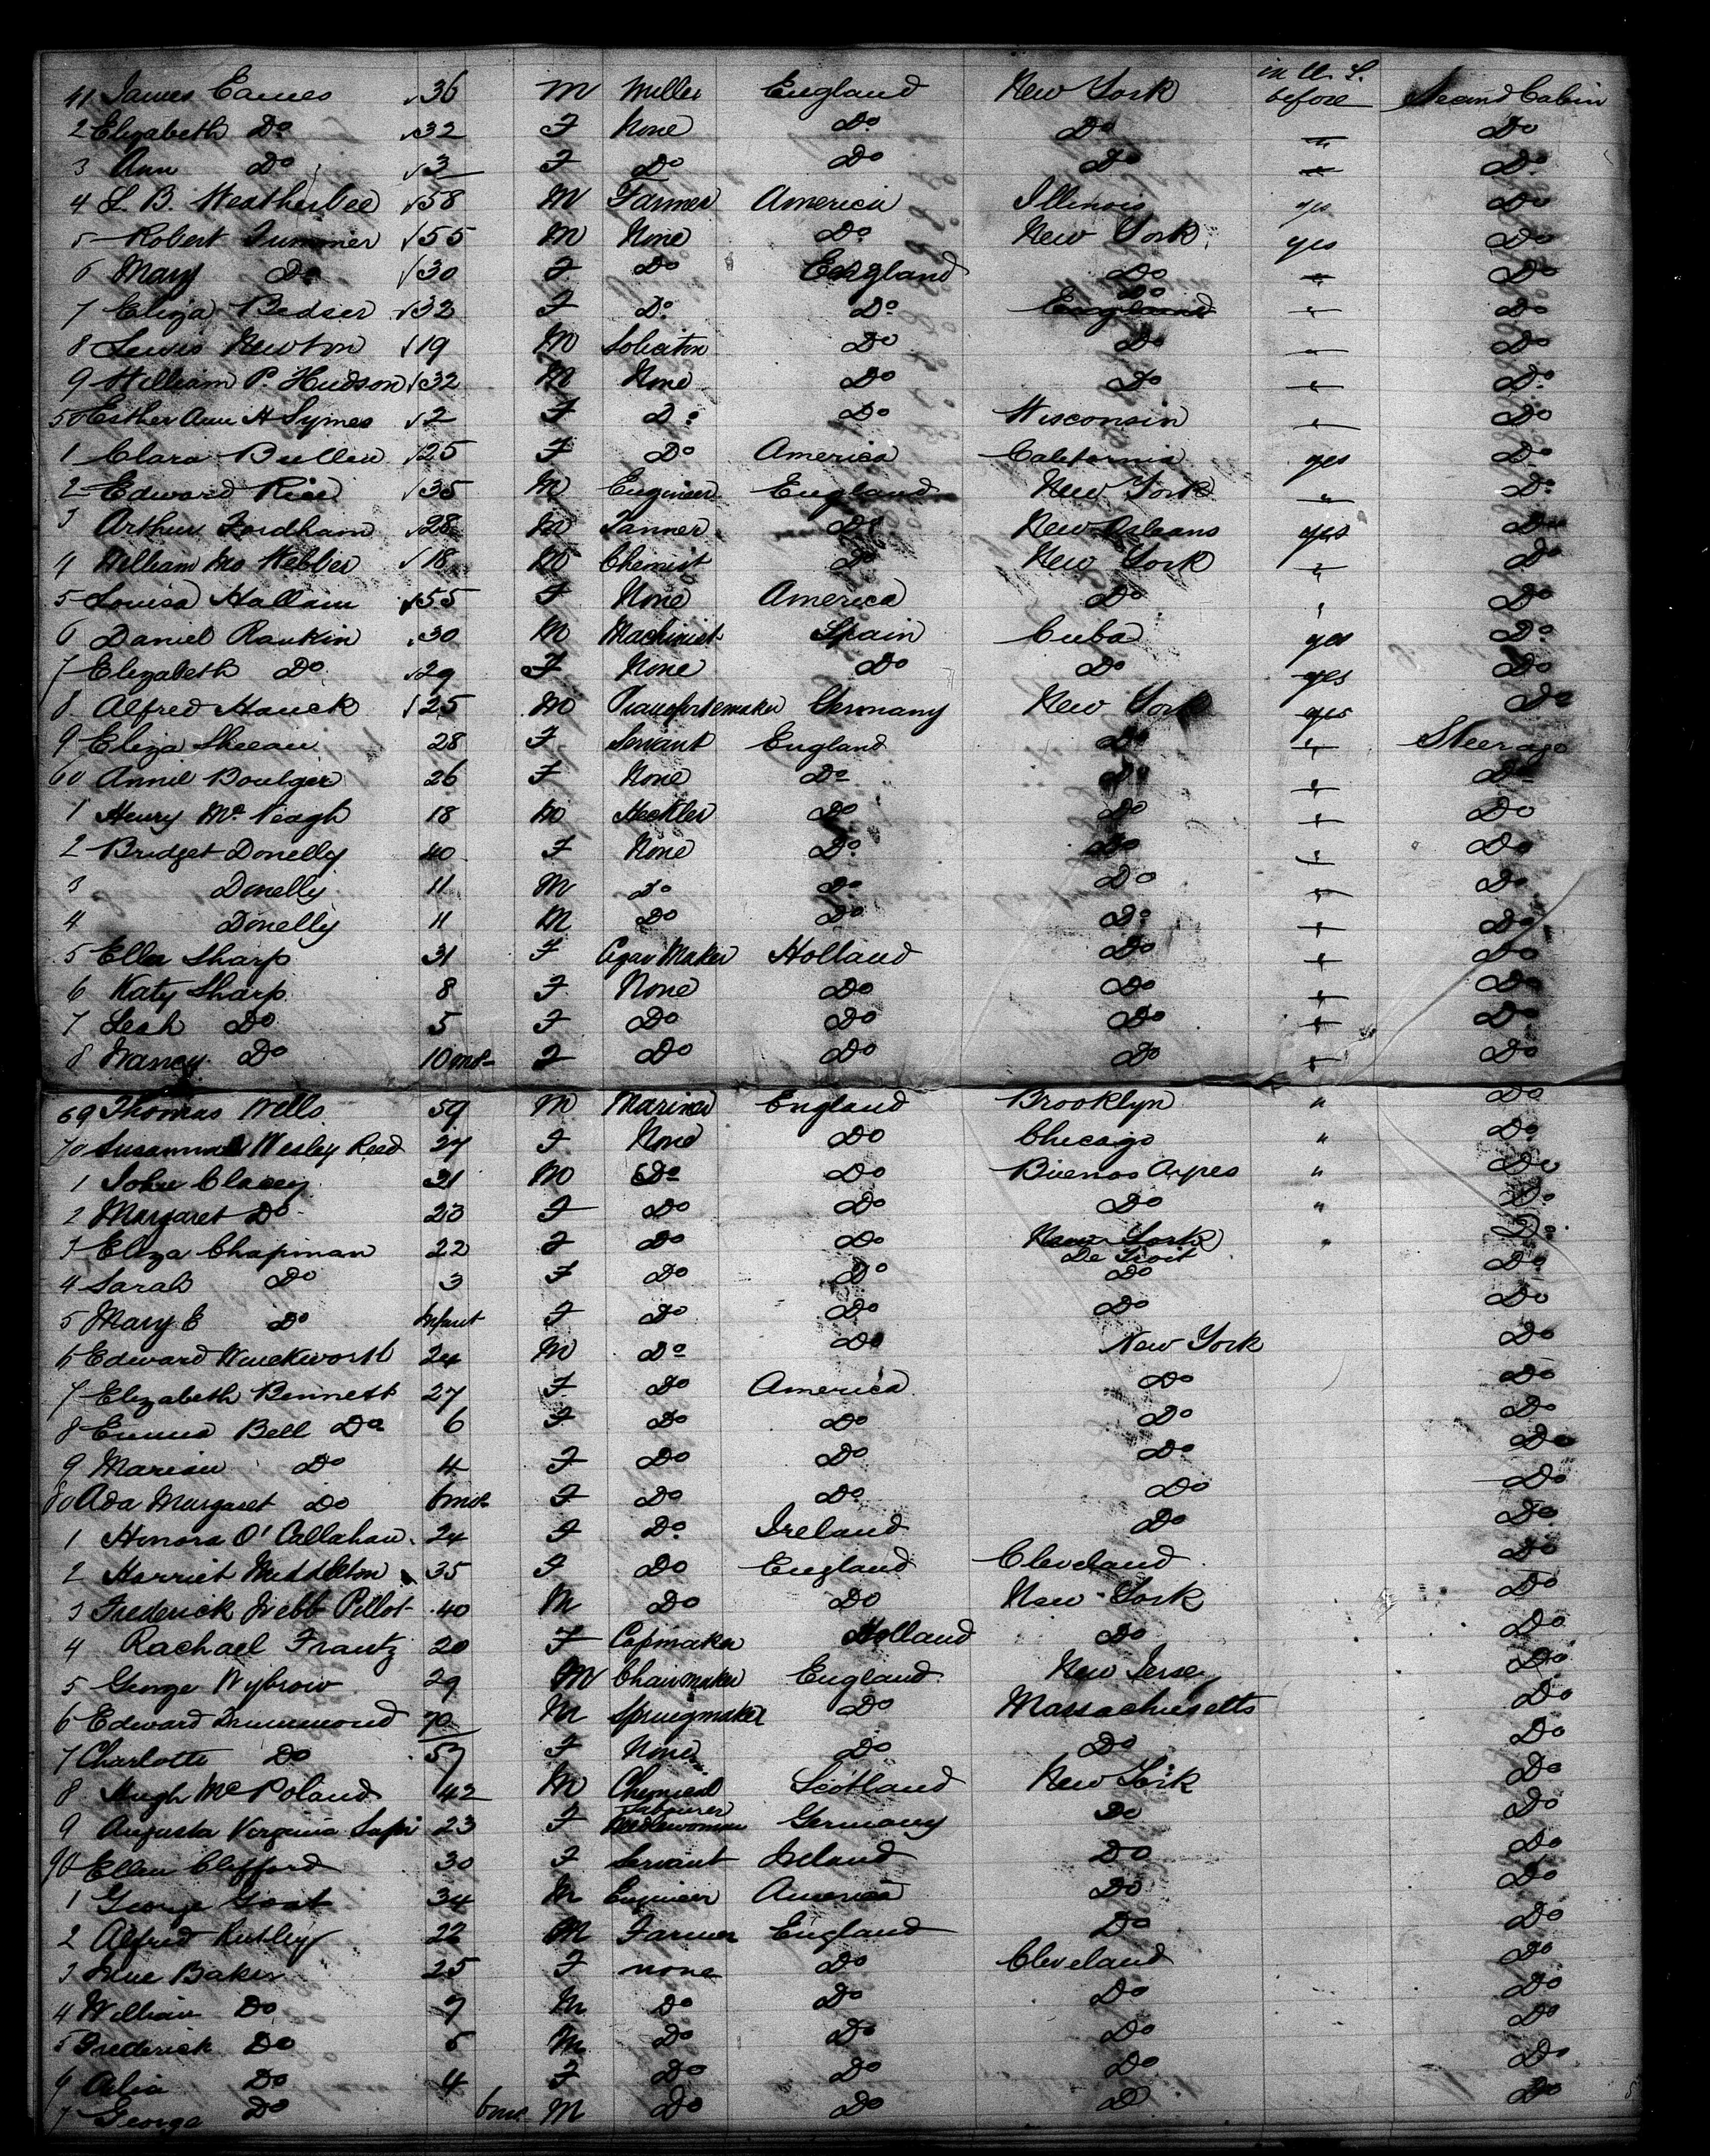 in U. S.
41 James Eames 36 M Miller England New York before Second Cabin
2 Elizabeth Do 32 F None Do Do " Do
3 Ann Do 3 F Do Do Do " Do
4 L. B. Weatherbee 58 M Farmer America Illinois yes Do
5 Robert Summer 55 M None Do New York yes Do
6 Mary Do 30 F Do England Do " Do
Do
7 Eliza Bedser 32 F Do Do England " Do
8 Lewis Newton 19 M Soliciton Do Do " Do
9 William P. Hudson 32 M None Do Do " Do
50 Esther Ann H Symes 2 F Do Do Wisconsin " Do
1 Clara Bullen 25 F Do America California yes Do
2 Edward Rice 35 M Engineer England New York " Do
3 Arthur Fordham 28 M Tanner Do New Orleans yes Do
4 William Webber 18 M Chemist Do New York " Do
5 Louisa Hallam 55 F None America Do " Do
6 Daniel Rankin 30 M Machinist Spain Cuba yes Do
7 Elizabeth Do 29 F None Do Do yes Do
8 Alfred Hauck 25 M Pianofortemaker Germany New York yes Do
9 Eliza Sheean 28 F Servant England Do " Steerage
60 Annie Boulger 26 F None Do Do " Do
1 Henry Mc Veagh 18 M Heckler Do Do " Do
2 Bridget Donelly 40 F None Do Do " Do
3 Donelly 11 M Do Do Do " Do
4 Donelly 11 M Do Do Do " Do
5 Ellen Sharp 31 F Cigar Maker Holland Do " Do
6 Katy Sharp 8 F None Do Do " Do
7 Leah Do 5 F Do Do Do " Do
8 Nancy Do 10 mos F Do Do Do " Do
69 Thomas Wells 59 M Mariner England Brooklyn " Do
70 Susanna Wesley Reed 27 F None Do Chicago " Do
1 John Clacey 31 M Do Do Buenos Ayres " Do
2 Margaret Do 23 F Do Do Do " Do
3 Eliza Chapman 22 F Do Do New York " Do
De Troit
4 Sarah Do 3 F Do Do Do Do
5 Mary E Do Infant F Do Do Do Do
6 Edward Winckworth 24 M Do Do New York Do
7 Elizabeth Bennett 27 F Do America Do Do
8 Emma Bell Do 6 F Do Do Do Do
9 Marian Do 4 F Do Do Do Do
80 Ada Margaret Do 6 mos F Do Do Do Do
1 Honora O'Callahan 24 F Do Ireland Do Do
2 Harriet Middleton 35 F Do England Cleveland Do
3 Frederick Webb Pillot 40 M Do Do New York Do
4 Rachael Frantz 20 F Capmaker Holland Do Do
5 George Wybrow 29 M Chairmaker England New Jersey Do
6 Edward Drummond 70 M Springmaker Do Massachusetts Do
7 Charlotte Do 57 F None Do Do Do
8 Hugh McPoland 42 M Chemical Scotland New York Do
Labourer
9 Augusta Virginia 23 F Needlewoman Germany Do Do
90 Ellen Clifford 30 F Servant Ireland Do Do
1 George Goat 34 M Engineer America Do Do
2 Alfred 22 M Farmer England Do Do
3 Baker 25 F none Do Cleveland Do
4 William Do 7 M Do Do Do Do
5 Frederick Do M Do Do Do Do
6 Do 4 F Do Do Do Do
7 George Do 6 mos M Do Do Do Do